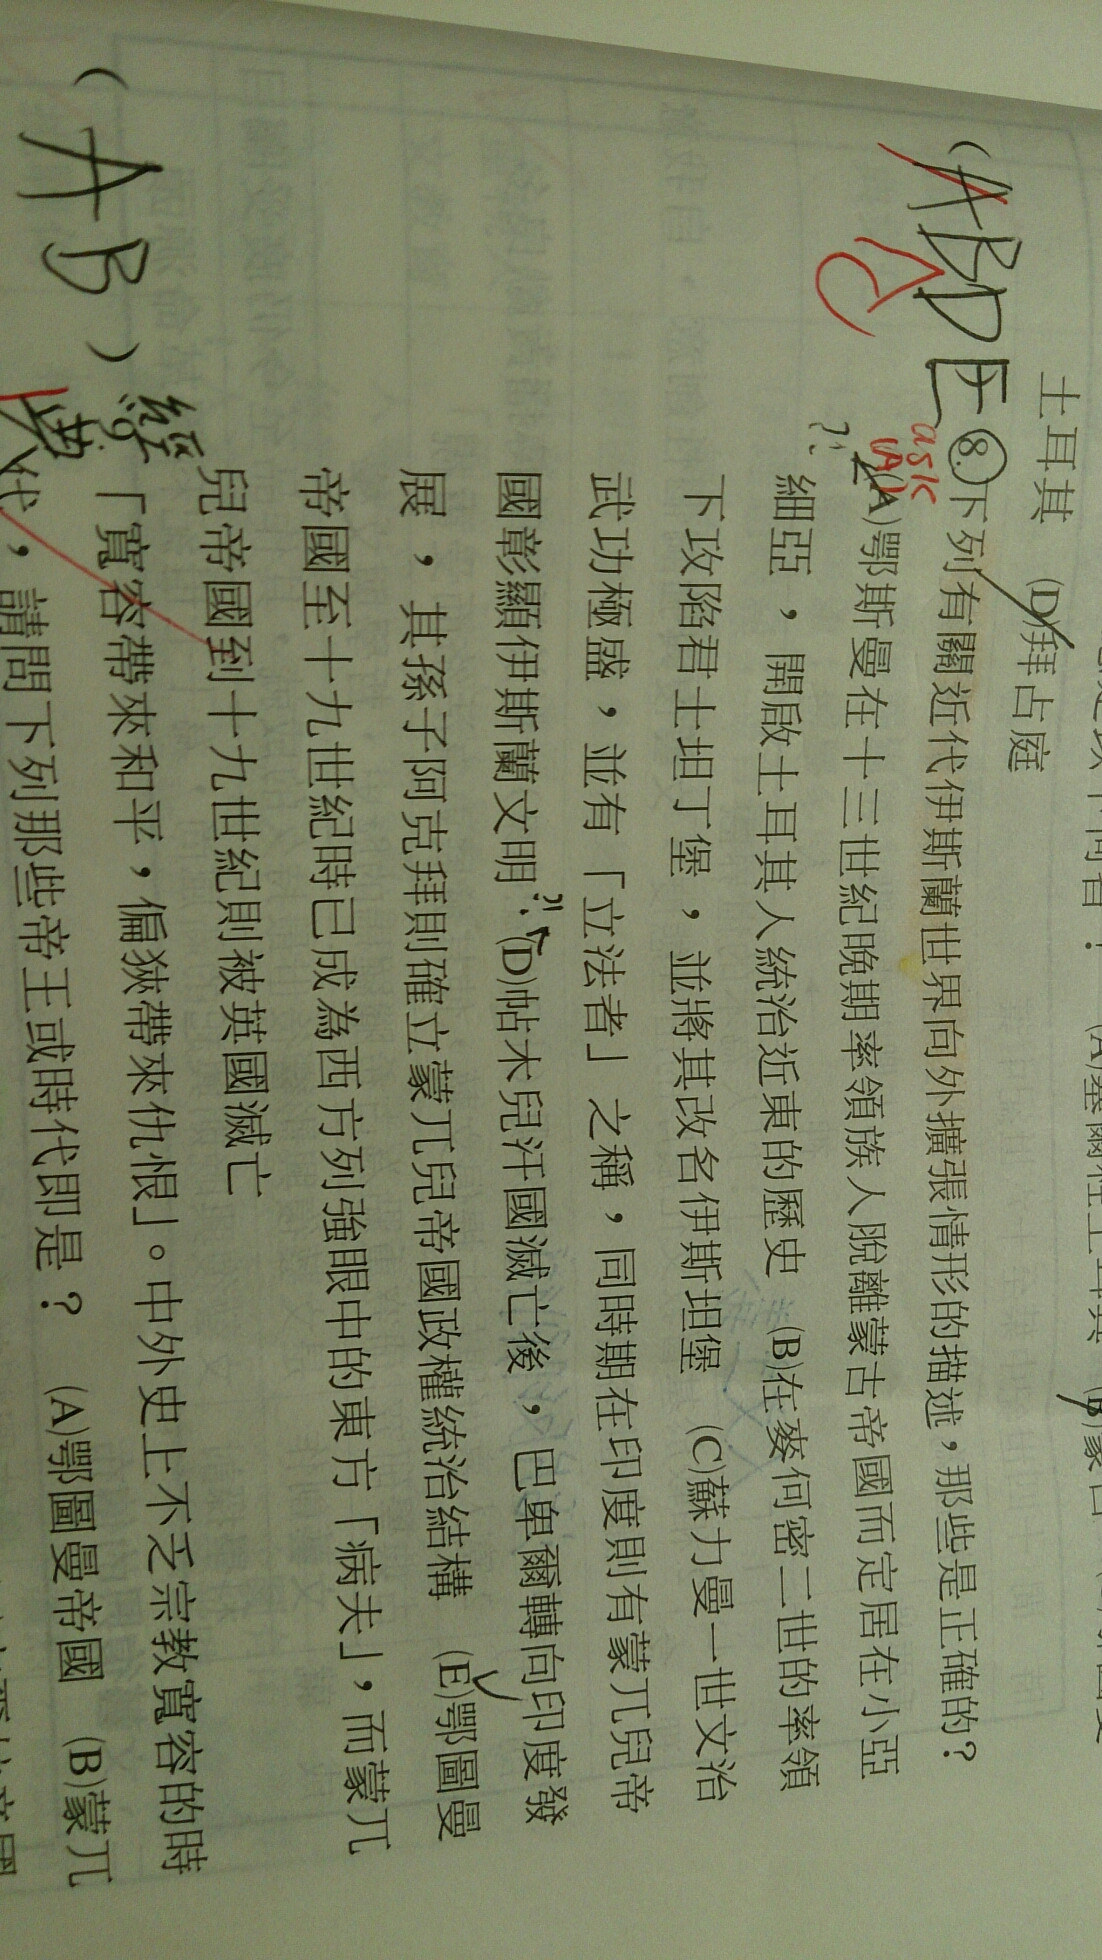 土耳其 (D)拜占庭
(ABDE 8.下列有關近代伊斯蘭世界向外擴張情形的描述，那些是正確的？
C
ask
(A)
?? (A)鄂斯曼在十三世紀晚期率領族人脫離蒙古帝國而定居在小亞
細亞，開啟土耳其人統治近東的歷史 (B)在麥何密二世的率領
下攻陷君士坦丁堡，並將其改名伊斯坦堡 (C)蘇力曼一世文治
武功極盛，並有「立法者」之稱，同時期在印度則有蒙兀兒帝
國彰顯伊斯蘭文明 ?? (D)帖木兒汗國滅亡後，巴卑爾轉向印度發
展，其孫子阿克拜則確立蒙兀兒帝國政權統治結構 (E)鄂圖曼
帝國至十九世紀時已成為西方列強眼中的東方「病夫」，而蒙兀
兒帝國到十九世紀則被英國滅亡
(AB) 「寬容帶來和平，偏狹帶來仇恨」。中外史上不乏宗教寬容的時
代，請問下列那些帝王或時代即是？ (A)鄂圖曼帝國 (B)蒙兀